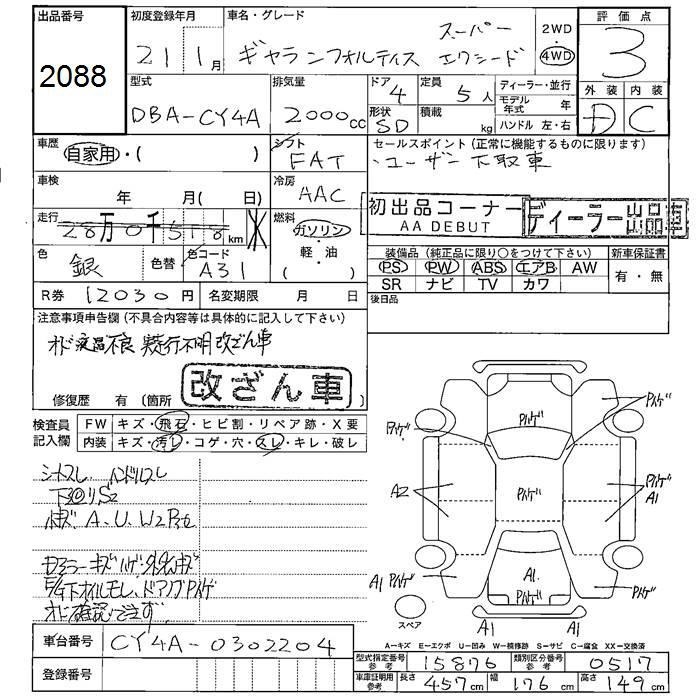 出品番号
2088
初度登録年月
21 1月
車名・グレード
スーパー
ギャランフォルティス エクシード
2WD
4WD
評価点
3
型式
DBA-CY4A
排気量
2000cc
ドア
4
定員
5人
形状
SD
積載
kg
ディーラー・並行
モデル年式 年
ハンドル 左・右
外装 内装
D C
車歴
自家用・( )
シフト
FAT
セールスポイント (正常に機能するものに限ります)
・ユーザー下取車
車検
年 月( 日)
冷房
AAC
初出品コーナー
AA DEBUT
ディーラー出品車
走行
28万0千518km
燃料
ガソリン
軽・油
( )
色
銀
色替
色コード
A31
装備品 (純正品に限り○をつけて下さい)
新車保証書
PS PW ABS エアB AW
有・無
SR ナビ TV カワ
R券 12030円
名変期限 月 日
後日品
注意事項申告欄 (不具合内容等は具体的に記入して下さい)
オド液晶不良 走行不明改ざん車
修復歴 有 (箇所 )
改ざん車
検査員記入欄
FW キズ・飛石・ヒビ割・リペア跡・X要
内装 キズ・汚レ・コゲ・穴・スレ・キレ・破レ
シートスレ ハンドルスレ
下廻りS2
A.U.W2
キズ ハゲ
下オイルモレ、ドアノブPハゲ
オド確認できず
Pハゲ
Pハゲ
Pハゲ
A2
Pハゲ
Pハゲ
A1
A1 Pハゲ
A1
Pハゲ
Pハゲ
スペア
A1 A1
A=キズ E=エクボ U=凹み W=補修跡 S=サビ C=腐食 XX=交換済
車台番号
CY4A-0302204
登録番号
型式指定番号 参考 15876
類別区分番号 参考 0517
車庫証明用 参考
長さ 457cm 幅 176cm 高さ 149cm